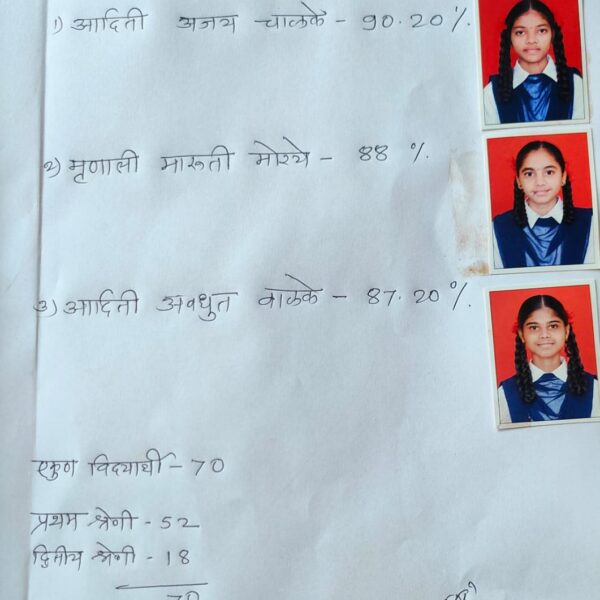 १) आदिती अजय चाळके - 90.20%.
२) मृणाली मारुती मोरये - 88 %.
३) आदिती अवधुत वाळके - 87.20%.
एकुण विद्यार्थी - 70
प्रथम श्रेणी - 52
द्वितीय श्रेणी - 18
70